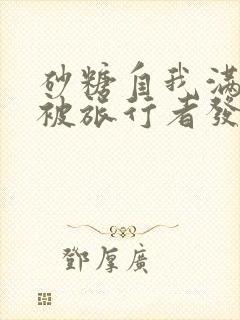 砂糖自我滿
被旅行者發
鄧厚廣